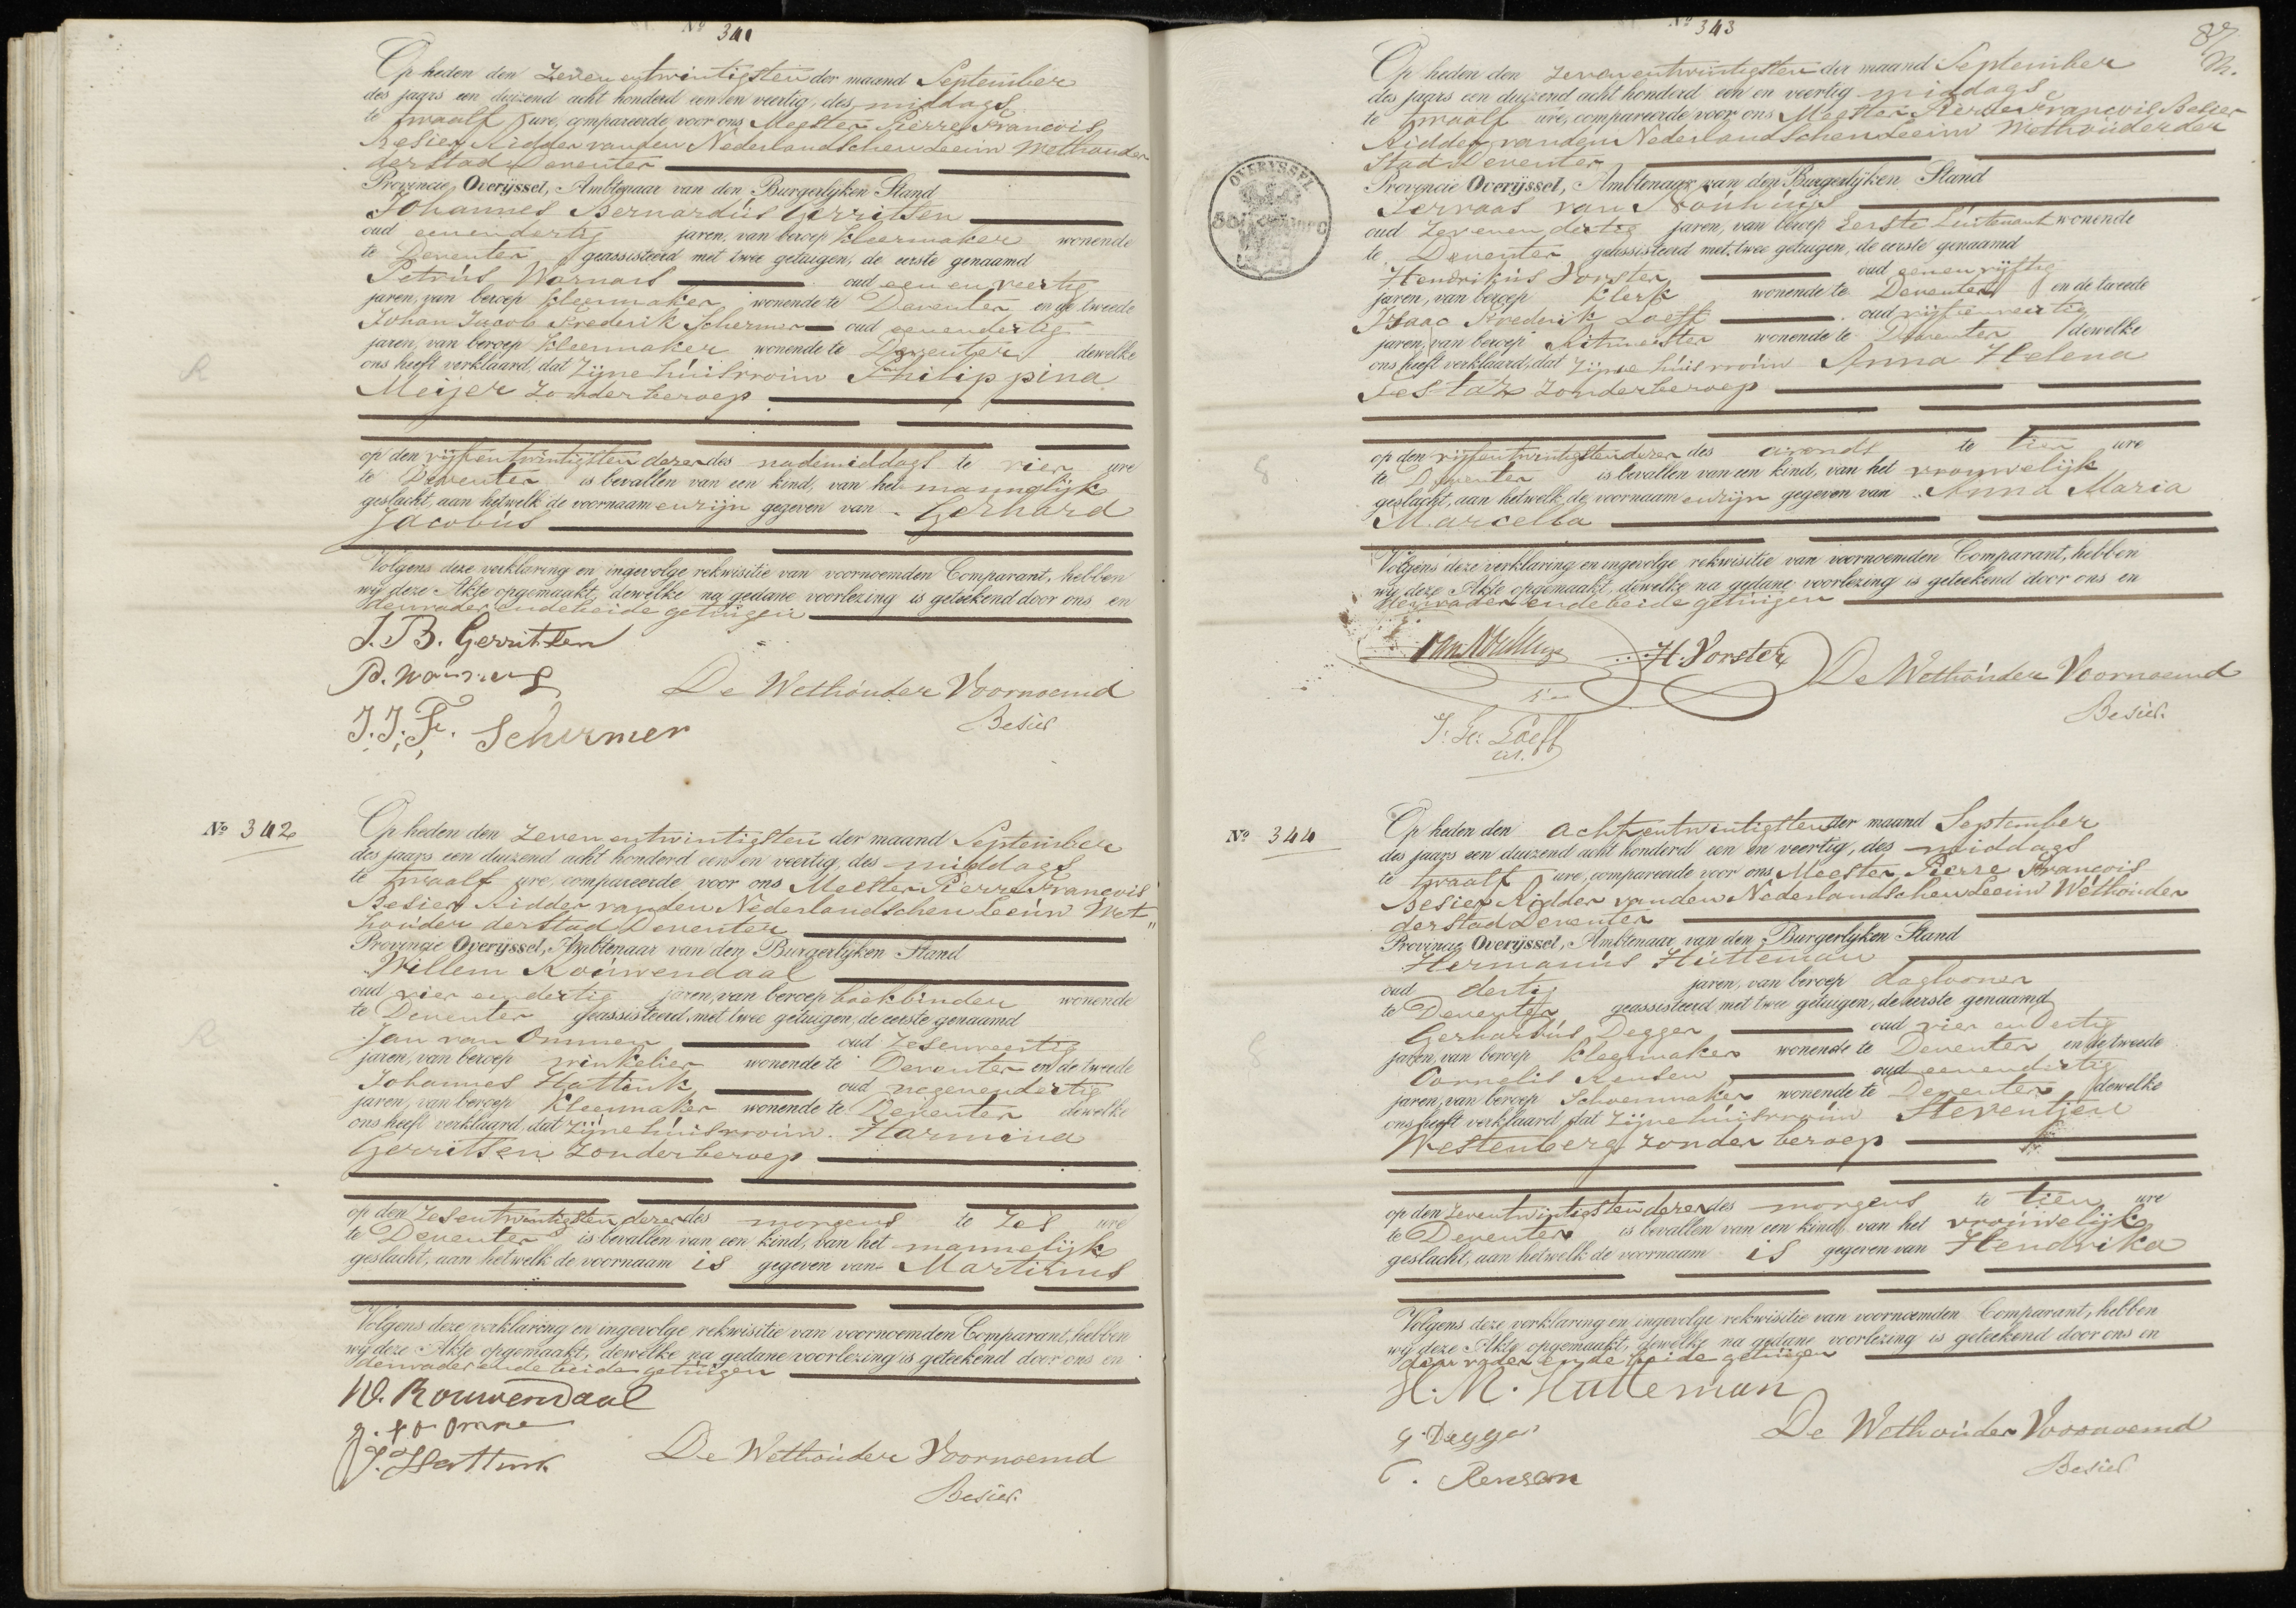 Nº 341
Op heden den zevenentwintigsten der maand September
des jaars een duizend acht honderd een en veertig, des middags
te twaalf ure, compareerde voor ons Meester Pierre Francois
Besier Ridder van den Nederlandschen Leeuw Wethouder
der Stad Deventer
Provincie Overÿssel, Ambtenaar van den Burgerlyken Stand
Johannes Bernardus Gerritsen
oud eenendertig jaren, van beroep kleermaker wonende
te Deventer geassisteerd met twee getuigen, de eerste genaamd
Petrus Warnars oud eenenveertig
jaren, van beroep kleermaker wonende te Deventer en de tweede
Johan Jacob Frederik Schermer oud eenendertig
jaren, van beroep kleermaker wonende te Deventer dewelke
ons heeft verklaard, dat zijne huisvrouw Philippina
Meijer zonder beroep
op den vijfentwintigsten dezer des nademiddags te vier ure
te Deventer is bevallen van een kind, van het mannelijk
geslacht, aan hetwelk de voornaamen zijn gegeven van Gerhard
Jacobus
Volgens deze verklaring en ingevolge rekwisitie van voornoemden Comparant, hebben
wij deze Akte opgemaakt, dewelke na gedane voorlezing is geteekend door ons en
den vader en de beide getuigen
J. B. Gerritsen
P. Warnars
De Wethouder Voornoemd
Besier
J. J. F. Schermer
Nº 342
Op heden den zevenentwintigsten der maand September
des jaars een duizend acht honderd een en veertig, des middags
te twaalf ure, compareerde voor ons Meester Pierre Francois
Besier Ridder van den Nederlandschen Leeuw Wet"
houder der Stad Deventer
Provincie Overÿssel, Ambtenaar van den Burgerlyken Stand
Willem Rouwendaal
oud vier en dertig jaren, van beroep boekbinder wonende
te Deventer geassisteerd met twee getuigen, de eerste genaamd
Jan van Ommen oud zesenveertig
jaren, van beroep winkelier wonende te Deventer en de tweede
Johannes Hattink oud negenendertig
jaren, van beroep kleermaker wonende te Deventer dewelke
ons heeft verklaard, dat zijne huisvrouw Harmina
Gerritsen zonder beroep
op den zesentwintigsten dezer des morgens te zes ure
te Deventer is bevallen van een kind, van het mannelijk
geslacht, aan hetwelk de voornaam is gegeven van Martinus
Volgens deze verklaring en ingevolge rekwisitie van voornoemden Comparant, hebben
wij deze Akte opgemaakt, dewelke na gedane voorlezing is geteekend door ons en
den vader en de beide getuigen
W. Rouwendaal
J. Hattink
De Wethouder Voornoemd
Besier
87
Nº 343
Op heden den zevenentwintigsten der maand September
des jaars een duizend acht honderd een en veertig middags
te twaalf ure, compareerde voor ons Meester Pierre Francois Besier
Ridder van den Nederlandschen Leeuw Wethouder der
Stad Deventer
OVERYSSEL
Provincie Overÿssel, Ambtenaar van den Burgerlyken Stand
Servaas van Nouhuijs
oud zevenendertig jaren, van beroep Eerste Luitenant wonende
te Deventer geassisteerd met twee getuigen, de eerste genaamd
Hendrikus Vorster oud eenenvijftig
jaren, van beroep klerk wonende te Deventer en de tweede
Isaac Frederik Loeff oud vijfenveertig
jaren, van beroep Ritmeister wonende te Deventer dewelke
ons heeft verklaard, dat zijne huisvrouw Anna Helena
Testas zonder beroep
op den vijfentwintigsten dezer des avonds te tien ure
te Deventer is bevallen van een kind, van het vrouwelijk
geslacht, aan hetwelk de voornaamen zijn gegeven van Anna Maria
Marcella
Volgens deze verklaring en ingevolge rekwisitie van voornoemden Comparant, hebben
wij deze Akte opgemaakt, dewelke na gedane voorlezing is geteekend door ons en
den vader en de beide getuigen
H. Vorster
De Wethouder Voornoemd
Besier
Loeff
Nº 344
Op heden den achtentwintigsten der maand September
des jaars een duizend acht honderd een en veertig, des middags
te twaalf ure, compareerde voor ons Meester Pierre Francois
Besier Ridder van den Nederlandschen Leeuw Wethouder
der Stad Deventer
Provincie Overÿssel, Ambtenaar van den Burgerlyken Stand
Hermanus Hutteman
oud dertig jaren, van beroep daglooner
te Deventer geassisteerd met twee getuigen, de eerste genaamd
Gerhardus Degger oud vier en dertig
jaren, van beroep kleermaker wonende te Deventer en de tweede
Cornelis Rensen oud eenendertig
jaren, van beroep Schoenmaker wonende te Deventer dewelke
ons heeft verklaard, dat zijne huisvrouw Steventjen
Westenberg zonder beroep
op den zeventwintigsten dezer des morgens te tien ure
te Deventer is bevallen van een kind, van het vrouwelijk
geslacht, aan hetwelk de voornaam is gegeven van Hendrika
Volgens deze verklaring en ingevolge rekwisitie van voornoemden Comparant, hebben
wij deze Akte opgemaakt, dewelke na gedane voorlezing is geteekend door ons en
den vader en de beide getuigen
H. M. Hutteman
G. Degger
De Wethouder Voornoemd
Besier
C. Rensen